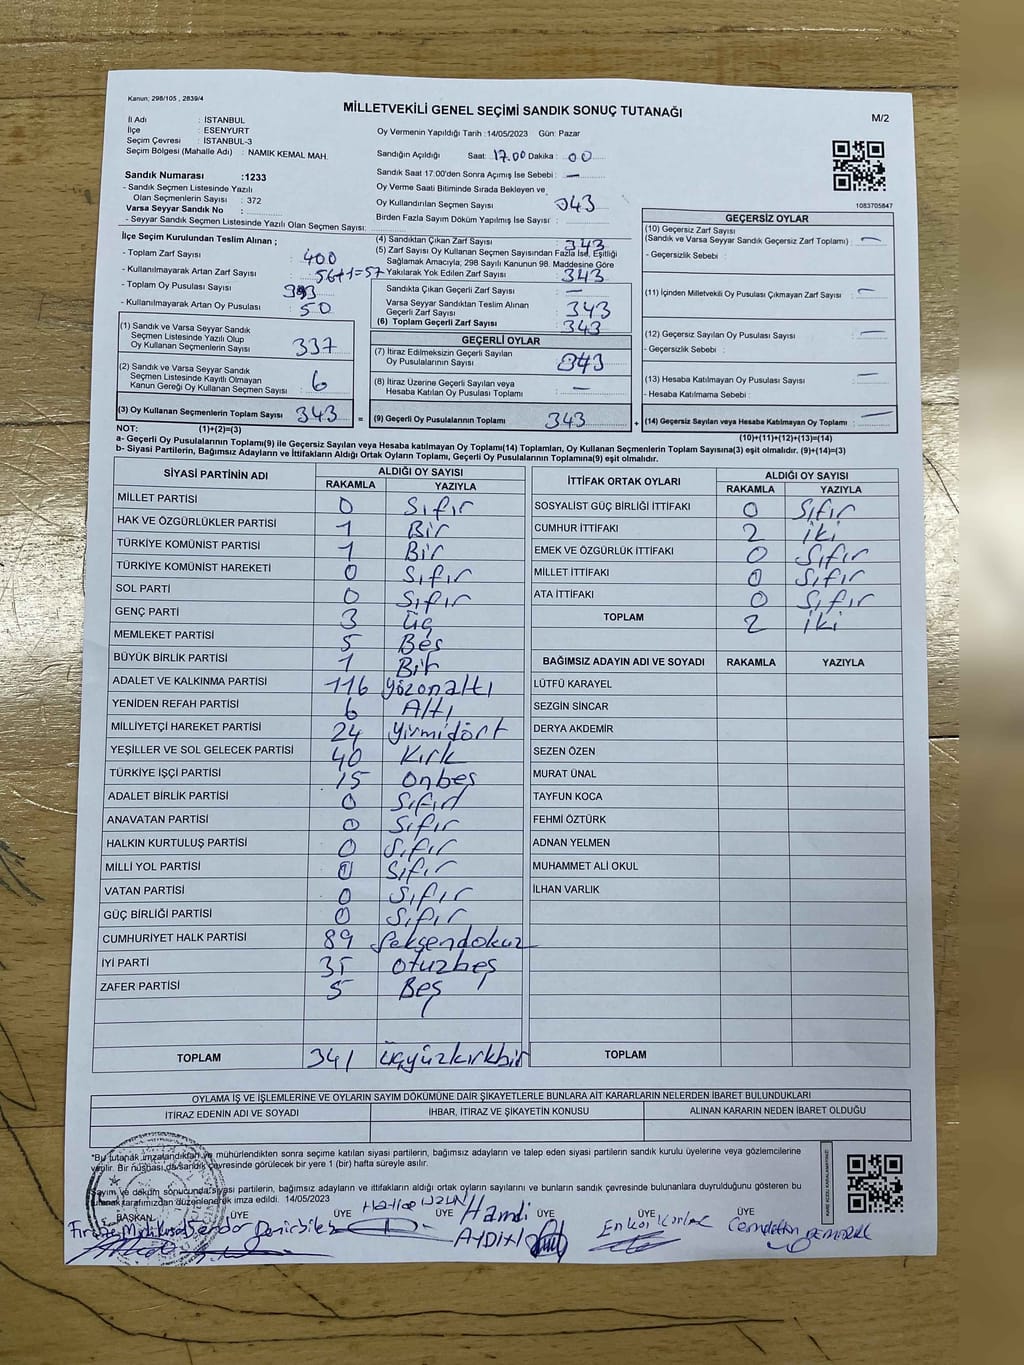 Kanun; 298/105 , 2839/4
MİLLETVEKİLİ GENEL SEÇİMİ SANDIK SONUÇ TUTANAĞI
M/2
İl Adı : İSTANBUL
İlçe : ESENYURT
Seçim Çevresi : İSTANBUL-3
Seçim Bölgesi (Mahalle Adı) : NAMIK KEMAL MAH.
Oy Vermenin Yapıldığı Tarih :14/05/2023 Gün: Pazar
Sandığın Açıldığı Saat: 17.00 Dakika : 00
Sandık Saat 17:00'den Sonra Açımış İse Sebebi : —
Oy Verme Saati Bitiminde Sırada Bekleyen ve
Oy Kullandırılan Seçmen Sayısı 343
Birden Fazla Sayım Döküm Yapılmış İse Sayısı :
1083705847
Sandık Numarası :1233
- Sandık Seçmen Listesinde Yazılı
Olan Seçmenlerin Sayısı : 372
Varsa Seyyar Sandık No :
- Seyyar Sandık Seçmen Listesinde Yazılı Olan Seçmen Sayısı:
İlçe Seçim Kurulundan Teslim Alınan ;
- Toplam Zarf Sayısı : 400
- Kullanılmayarak Artan Zarf Sayısı : 56+1=57
- Toplam Oy Pusulası Sayısı :
- Kullanılmayarak Artan Oy Pusulası : 50
(1) Sandık ve Varsa Seyyar Sandık
Seçmen Listesinde Yazılı Olup
Oy Kullanan Seçmenlerin Sayısı 337
(2) Sandık ve Varsa Seyyar Sandık
Seçmen Listesinde Kayıtlı Olmayan
Kanun Gereği Oy Kullanan Seçmen Sayısı : 6
(3) Oy Kullanan Seçmenlerin Toplam Sayısı 343 =
(4) Sandıktan Çıkan Zarf Sayısı : 343
(5) Zarf Sayısı Oy Kullanan Seçmen Sayısından Fazla İse, Eşitliği
Sağlamak Amacıyla; 298 Sayılı Kanunun 98. Maddesine Göre
Yakılarak Yok Edilen Zarf Sayısı : 343
Sandıkta Çıkan Geçerli Zarf Sayısı : —
Varsa Seyyar Sandıktan Teslim Alınan
Geçerli Zarf Sayısı : 343
(6) Toplam Geçerli Zarf Sayısı : 343
GEÇERLİ OYLAR
(7) İtiraz Edilmeksizin Geçerli Sayılan
Oy Pusulalarının Sayısı : 343
(8) İtiraz Üzerine Geçerli Sayılan veya
Hesaba Katılan Oy Pusulası Toplamı : —
(9) Geçerli Oy Pusulalarının Toplamı 343 +
GEÇERSİZ OYLAR
(10) Geçersiz Zarf Sayısı
(Sandık ve Varsa Seyyar Sandık Geçersiz Zarf Toplamı) : —
- Geçersizlik Sebebi :
(11) İçinden Milletvekili Oy Pusulası Çıkmayan Zarf Sayısı : —
(12) Geçersiz Sayılan Oy Pusulası Sayısı : —
- Geçersizlik Sebebi :
(13) Hesaba Katılmayan Oy Pusulası Sayısı : —
- Hesaba Katılmama Sebebi :
(14) Geçersiz Sayılan veya Hesaba Katılmayan Oy Toplamı : —
NOT: (1)+(2)=(3) (10)+(11)+(12)+(13)=(14)
a- Geçerli Oy Pusulalarının Toplamı(9) ile Geçersiz Sayılan veya Hesaba katılmayan Oy Toplamı(14) Toplamları, Oy Kullanan Seçmenlerin Toplam Sayısına(3) eşit olmalıdır. (9)+(14)=(3)
b- Siyasi Partilerin, Bağımsız Adayların ve İttifakların Aldığı Ortak Oyların Toplamı, Geçerli Oy Pusulalarının Toplamına(9) eşit olmalıdır.
SİYASİ PARTİNİN ADI ALDIĞI OY SAYISI
RAKAMLA YAZIYLA
MİLLET PARTİSİ 0 Sıfır
HAK VE ÖZGÜRLÜKLER PARTİSİ 1 Bir
TÜRKİYE KOMÜNİST PARTİSİ 1 Bir
TÜRKİYE KOMÜNİST HAREKETİ 0 Sıfır
SOL PARTİ 0 Sıfır
GENÇ PARTİ 3 Üç
MEMLEKET PARTİSİ 5 Beş
BÜYÜK BİRLİK PARTİSİ 1 Bir
ADALET VE KALKINMA PARTİSİ 116 Yüzonaltı
YENİDEN REFAH PARTİSİ 6 Altı
MİLLİYETÇİ HAREKET PARTİSİ 24 Yirmidört
YEŞİLLER VE SOL GELECEK PARTİSİ 40 Kırk
TÜRKİYE İŞÇİ PARTİSİ 15 Onbeş
ADALET BİRLİK PARTİSİ 0 Sıfır
ANAVATAN PARTİSİ 0 Sıfır
HALKIN KURTULUŞ PARTİSİ 0 Sıfır
MİLLİ YOL PARTİSİ 0 Sıfır
VATAN PARTİSİ 0 Sıfır
GÜÇ BİRLİĞİ PARTİSİ 0 Sıfır
CUMHURİYET HALK PARTİSİ 89 Seksendokuz
İYİ PARTİ 35 Otuzbeş
ZAFER PARTİSİ 5 Beş
TOPLAM 341 Üçyüzkırkbir
İTTİFAK ORTAK OYLARI ALDIĞI OY SAYISI
RAKAMLA YAZIYLA
SOSYALİST GÜÇ BİRLİĞİ İTTİFAKI 0 Sıfır
CUMHUR İTTİFAKI 2 İki
EMEK VE ÖZGÜRLÜK İTTİFAKI 0 Sıfır
MİLLET İTTİFAKI 0 Sıfır
ATA İTTİFAKI 0 Sıfır
TOPLAM 2 İki
BAĞIMSIZ ADAYIN ADI VE SOYADI RAKAMLA YAZIYLA
LÜTFÜ KARAYEL
SEZGİN SİNCAR
DERYA AKDEMİR
SEZEN ÖZEN
MURAT ÜNAL
TAYFUN KOCA
FEHMİ ÖZTÜRK
ADNAN YELMEN
MUHAMMET ALİ OKUL
İLHAN VARLIK
TOPLAM
OYLAMA İŞ VE İŞLEMLERİNE VE OYLARIN SAYIM DÖKÜMÜNE DAİR ŞİKAYETLERLE BUNLARA AİT KARARLARIN NELERDEN İBARET BULUNDUKLARI
İTİRAZ EDENİN ADI VE SOYADI İHBAR, İTİRAZ VE ŞİKAYETİN KONUSU ALINAN KARARIN NEDEN İBARET OLDUĞU
*Bu tutanak imzalandıktan ve mühürlendikten sonra seçime katılan siyasi partilerin, bağımsız adayların ve talep eden siyasi partilerin sandık kurulu üyelerine veya gözlemcilerine
verilir. Bir nüshası da sandık çevresinde görülecek bir yere 1 (bir) hafta süreyle asılır.
Sayım ve döküm sonucunda siyasi partilerin, bağımsız adayların ve ittifakların aldığı ortak oyların sayılarını ve bunların sandık çevresinde bulunanlara duyrulduğunu gösteren bu
tutanak tarafımızdan düzenlenerek imza edildi. 14/05/2023
BAŞKAN ÜYE ÜYE ÜYE ÜYE ÜYE ÜYE
Hamdi
AYDIN